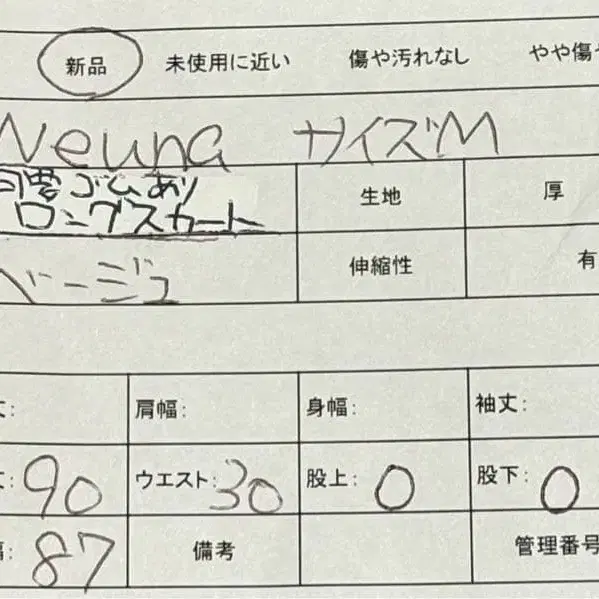 新品 未使用に近い 傷や汚れなし やや傷や
Neuna サイズM
ゴムあり
ロングスカート 生地 厚
ベージュ 伸縮性 有
丈: 肩幅: 身幅: 袖丈:
丈: 90 ウエスト: 30 股上: 0 股下: 0
幅: 87 備考 管理番号